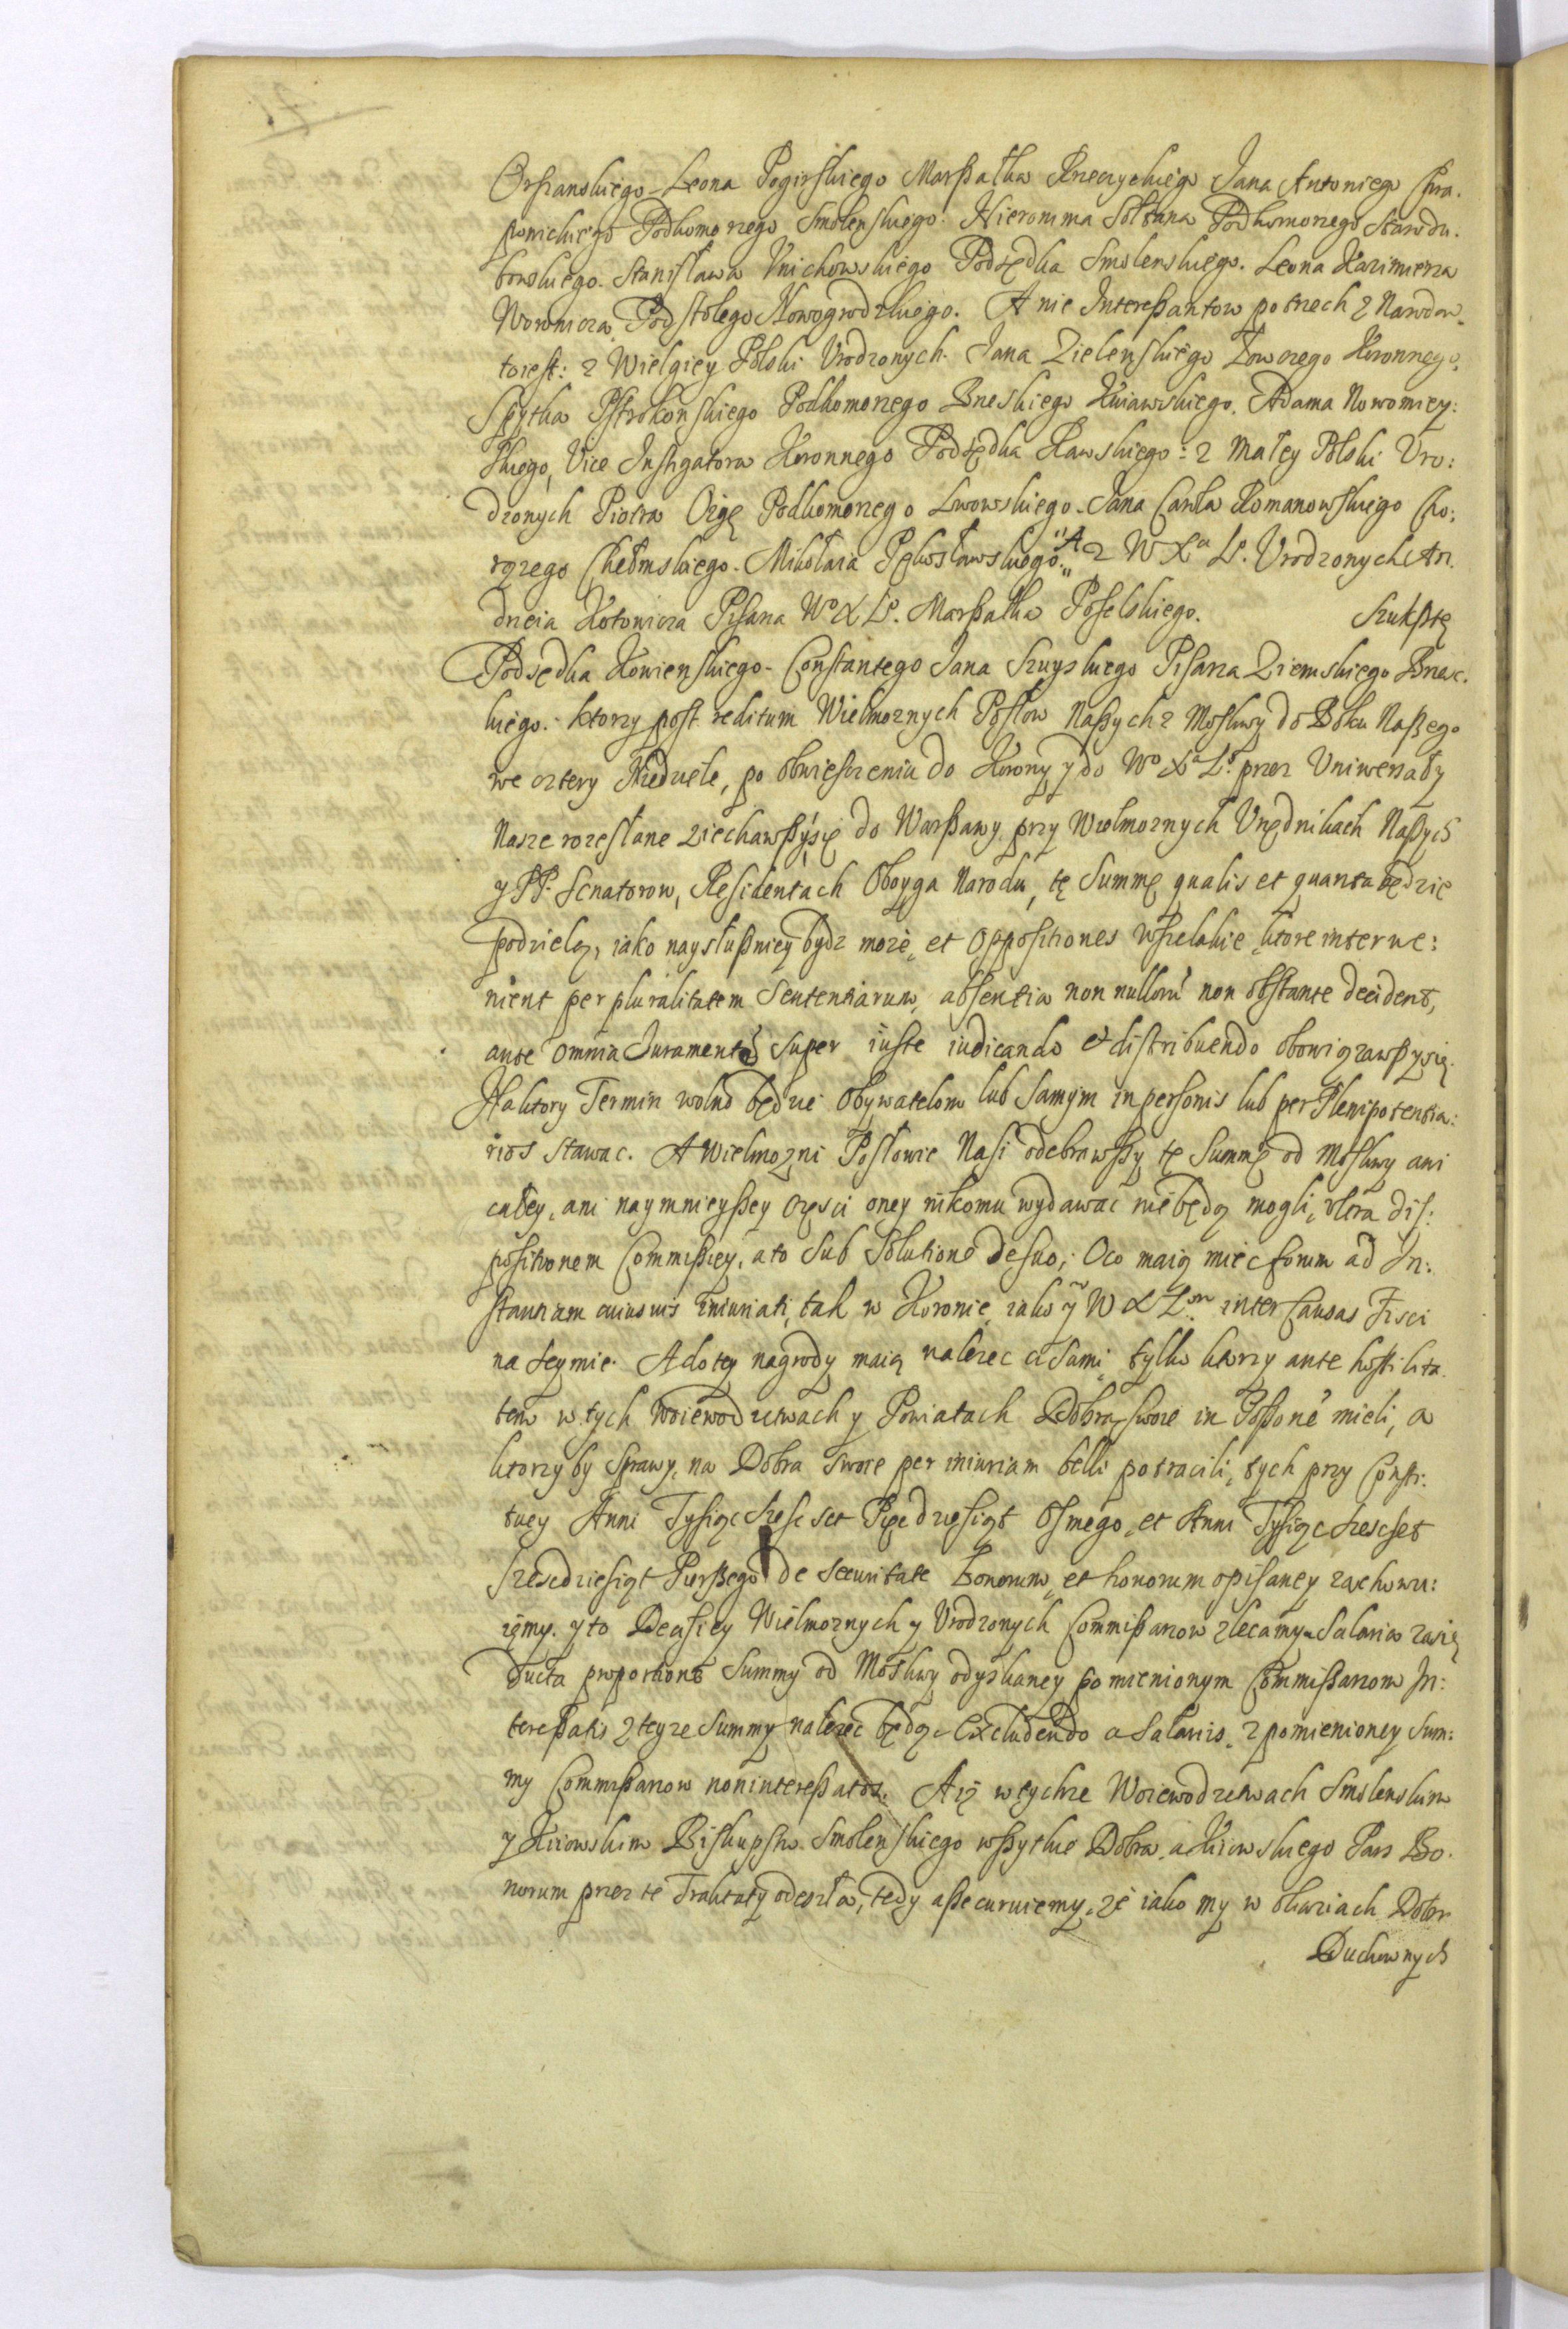 Orszanskiego Leona Pogirskiego Marszałka Rzeczyckiego Jana Antoniego Chra.
powickiego Podkomorzego Smolenskiego. Hieronima Sołtana Podkomorzego Starodu.
bowskiego. Stanisława Vnichowskiego Podsędka Smolenskiego. Leona Kazimierza
Podstolego Nowogrodzkiego. A nie Intereßantow po trzech z Narodow
toiest: z Wielgiey Polski Vrodzonych. Jana Zielenskiego Łowczego Koronnego,
Spytka Pstrokonskiego Podkomorzego Brzeskiego Kuiawskiego. Adama Nowomiey:
skiego, Vice Instigatora Koronnego Podsędka Rawskiego: z Małey Polski Vro:
dzonych Piotra Ożgę Podkomorzego Lwowskiego. Jana Carla Romanowskiego Cho:
rązego Chełmskiego. Mikołaia Pękosławskiego. A z W X a L. Vrodzonych An.
drzeia Kotowicza Pisarza Wo X L. Marßałka Poselskiego. Szukßtę
Podsędka Kowienskiego. Constantego Jana Szuyskiego Pisarza Ziemskiego Brzesc.
kiego. ktorzy post reditum Wielmoznych Posłow Naßych z Moskwy do Boku Naßego
we cztery Niedziele, po obwieszczeniu do Korony y do Wo Xa Lo przez Vniwersały
Nasze rozesłane ziechawßysię do Warßawy przy Wielmoznych Vrzędnikach Naßych
y PP. Senatorow, Residentach Oboyga Narodu, tę Summę qualis et quanta będzie
podzielą, iako naysłußniey bydz moze, et oppositiones wszelakie ktore interwe:
nient per pluralitatem Sententiarum, absentia non nulloru non obstante decident,
ante omnia Juramento super iuste iudicando et distribuendo obowiązawßysię.
Na ktory Termin wolno będzie Obywatelom lub samym in personis lub per Plenipotentia:
rios stawac. A Wielmozni Posłowie Nasi odebrawßy tę Summę od Moskwy ani
całey, ani naymnieyßey częsci oney nikomu wydawac niebędą mogli, vltra dis:
positionem Commißiey, a to sub Solutione de suo, Oco maią miec forum ad In:
stantiam cuiusuis iniuriati, tak w Koronie iako y W X L. inter Causas Fisci
na Seymie. A do tey nagrody maią nalezec ci sami tylko ktorzy ante hostilita.
tem w tych Woiewodztwach y Powiatach Dobra swoie in Poßone mieli, a
ktorzyby Sprawy, na Dobra swoie per iniuriam belli potracili, tych przy Consti:
tucy Anni Tysiąc szesc set Pięcdziesiąt Osmego, et Anni Tysiąc szescset
szescdziesiąt Pierßego de Securitate Bonorum, et honorum opisaney zachowu:
iemy. y to Decisiey Wielmoznych y Vrodzonych Commißarzow zlecamy. Salaria zasię
ducta proportione Summy od Moskwy odyskaney pomienionym Commißarzom In:
tereßatis z teyze Summy nalezec będą Excludendo a Salariis, z pomienioney Sum:
my Commißarzow nonintereßatos. A iz w tychze Woiewodztwach Smolenskim
y Kiiowskim Biskupstw. Smolenskiego wßytkie Dobra, a Kiiowskiego Pars Bo.
norum przez te Traktaty odeszła, tedy aßecuruiemy, ze iako my w okaziach Dobr
Duchownych